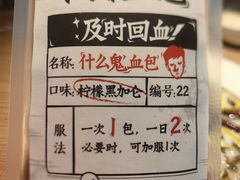 及时回血!
名称:什么鬼血包
口味:柠檬黑加仑 编号:22
服法 一次1包,一日2次
必要时,可加服1次